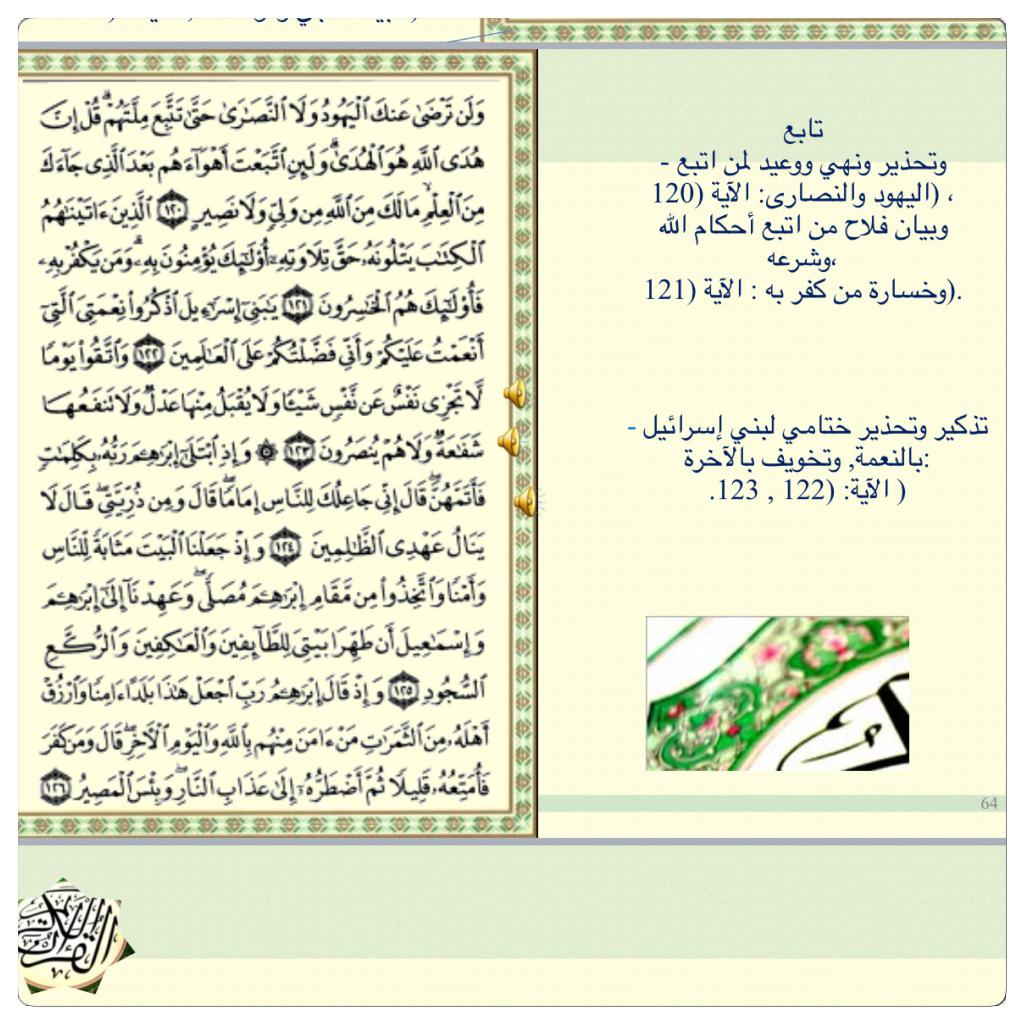 وَلَن تَرْضَىٰ عَنكَ ٱلْيَهُودُ وَلَا ٱلنَّصَٰرَىٰ حَتَّىٰ تَتَّبِعَ مِلَّتَهُمْ ۗ قُلْ إِنَّ
هُدَى ٱللَّهِ هُوَ ٱلْهُدَىٰ ۗ وَلَئِنِ ٱتَّبَعْتَ أَهْوَآءَهُم بَعْدَ ٱلَّذِى جَآءَكَ
مِنَ ٱلْعِلْمِ ۙ مَا لَكَ مِنَ ٱللَّهِ مِن وَلِىٍّ وَلَا نَصِيرٍ ١٢٠ ٱلَّذِينَ ءَاتَيْنَٰهُمُ
ٱلْكِتَٰبَ يَتْلُونَهُۥ حَقَّ تِلَاوَتِهِۦٓ أُو۟لَٰٓئِكَ يُؤْمِنُونَ بِهِۦ ۗ وَمَن يَكْفُرْ بِهِۦ
فَأُو۟لَٰٓئِكَ هُمُ ٱلْخَٰسِرُونَ ١٢١ يَٰبَنِىٓ إِسْرَٰٓءِيلَ ٱذْكُرُوا۟ نِعْمَتِىَ ٱلَّتِىٓ
أَنْعَمْتُ عَلَيْكُمْ وَأَنِّى فَضَّلْتُكُمْ عَلَى ٱلْعَٰلَمِينَ ١٢٢ وَٱتَّقُوا۟ يَوْمًا
لَّا تَجْزِى نَفْسٌ عَن نَّفْسٍ شَيْـًٔا وَلَا يُقْبَلُ مِنْهَا عَدْلٌ وَلَا تَنفَعُهَا
شَفَٰعَةٌ وَلَا هُمْ يُنصَرُونَ ١٢٣ ۞ وَإِذِ ٱبْتَلَىٰٓ إِبْرَٰهِـۧمَ رَبُّهُۥ بِكَلِمَٰتٍ
فَأَتَمَّهُنَّ ۖ قَالَ إِنِّى جَاعِلُكَ لِلنَّاسِ إِمَامًا ۖ قَالَ وَمِن ذُرِّيَّتِى ۖ قَالَ لَا
يَنَالُ عَهْدِى ٱلظَّٰلِمِينَ ١٢٤ وَإِذْ جَعَلْنَا ٱلْبَيْتَ مَثَابَةً لِّلنَّاسِ
وَأَمْنًا وَٱتَّخِذُوا۟ مِن مَّقَامِ إِبْرَٰهِـۧمَ مُصَلًّى ۖ وَعَهِدْنَآ إِلَىٰٓ إِبْرَٰهِـۧمَ
وَإِسْمَٰعِيلَ أَن طَهِّرَا بَيْتِىَ لِلطَّآئِفِينَ وَٱلْعَٰكِفِينَ وَٱلرُّكَّعِ
ٱلسُّجُودِ ١٢٥ وَإِذْ قَالَ إِبْرَٰهِـۧمُ رَبِّ ٱجْعَلْ هَٰذَا بَلَدًا ءَامِنًا وَٱرْزُقْ
أَهْلَهُۥ مِنَ ٱلثَّمَرَٰتِ مَنْ ءَامَنَ مِنْهُم بِٱللَّهِ وَٱلْيَوْمِ ٱلْءَاخِرِ ۖ قَالَ وَمَن كَفَرَ
فَأُمَتِّعُهُۥ قَلِيلًا ثُمَّ أَضْطَرُّهُۥٓ إِلَىٰ عَذَابِ ٱلنَّارِ ۖ وَبِئْسَ ٱلْمَصِيرُ ١٢٦
تابع
وتحذير ونهي ووعيد لمن اتبع -
، (اليهود والنصارى: الآية (120
وبيان فلاح من اتبع أحكام الله
،وشرعه
.(وخسارة من كفر به : الآية (121
تذكير وتحذير ختامي لبني إسرائيل -
:بالنعمة, وتخويف بالآخرة
( الآية: (122 , 123.
64
القرآن الكريم